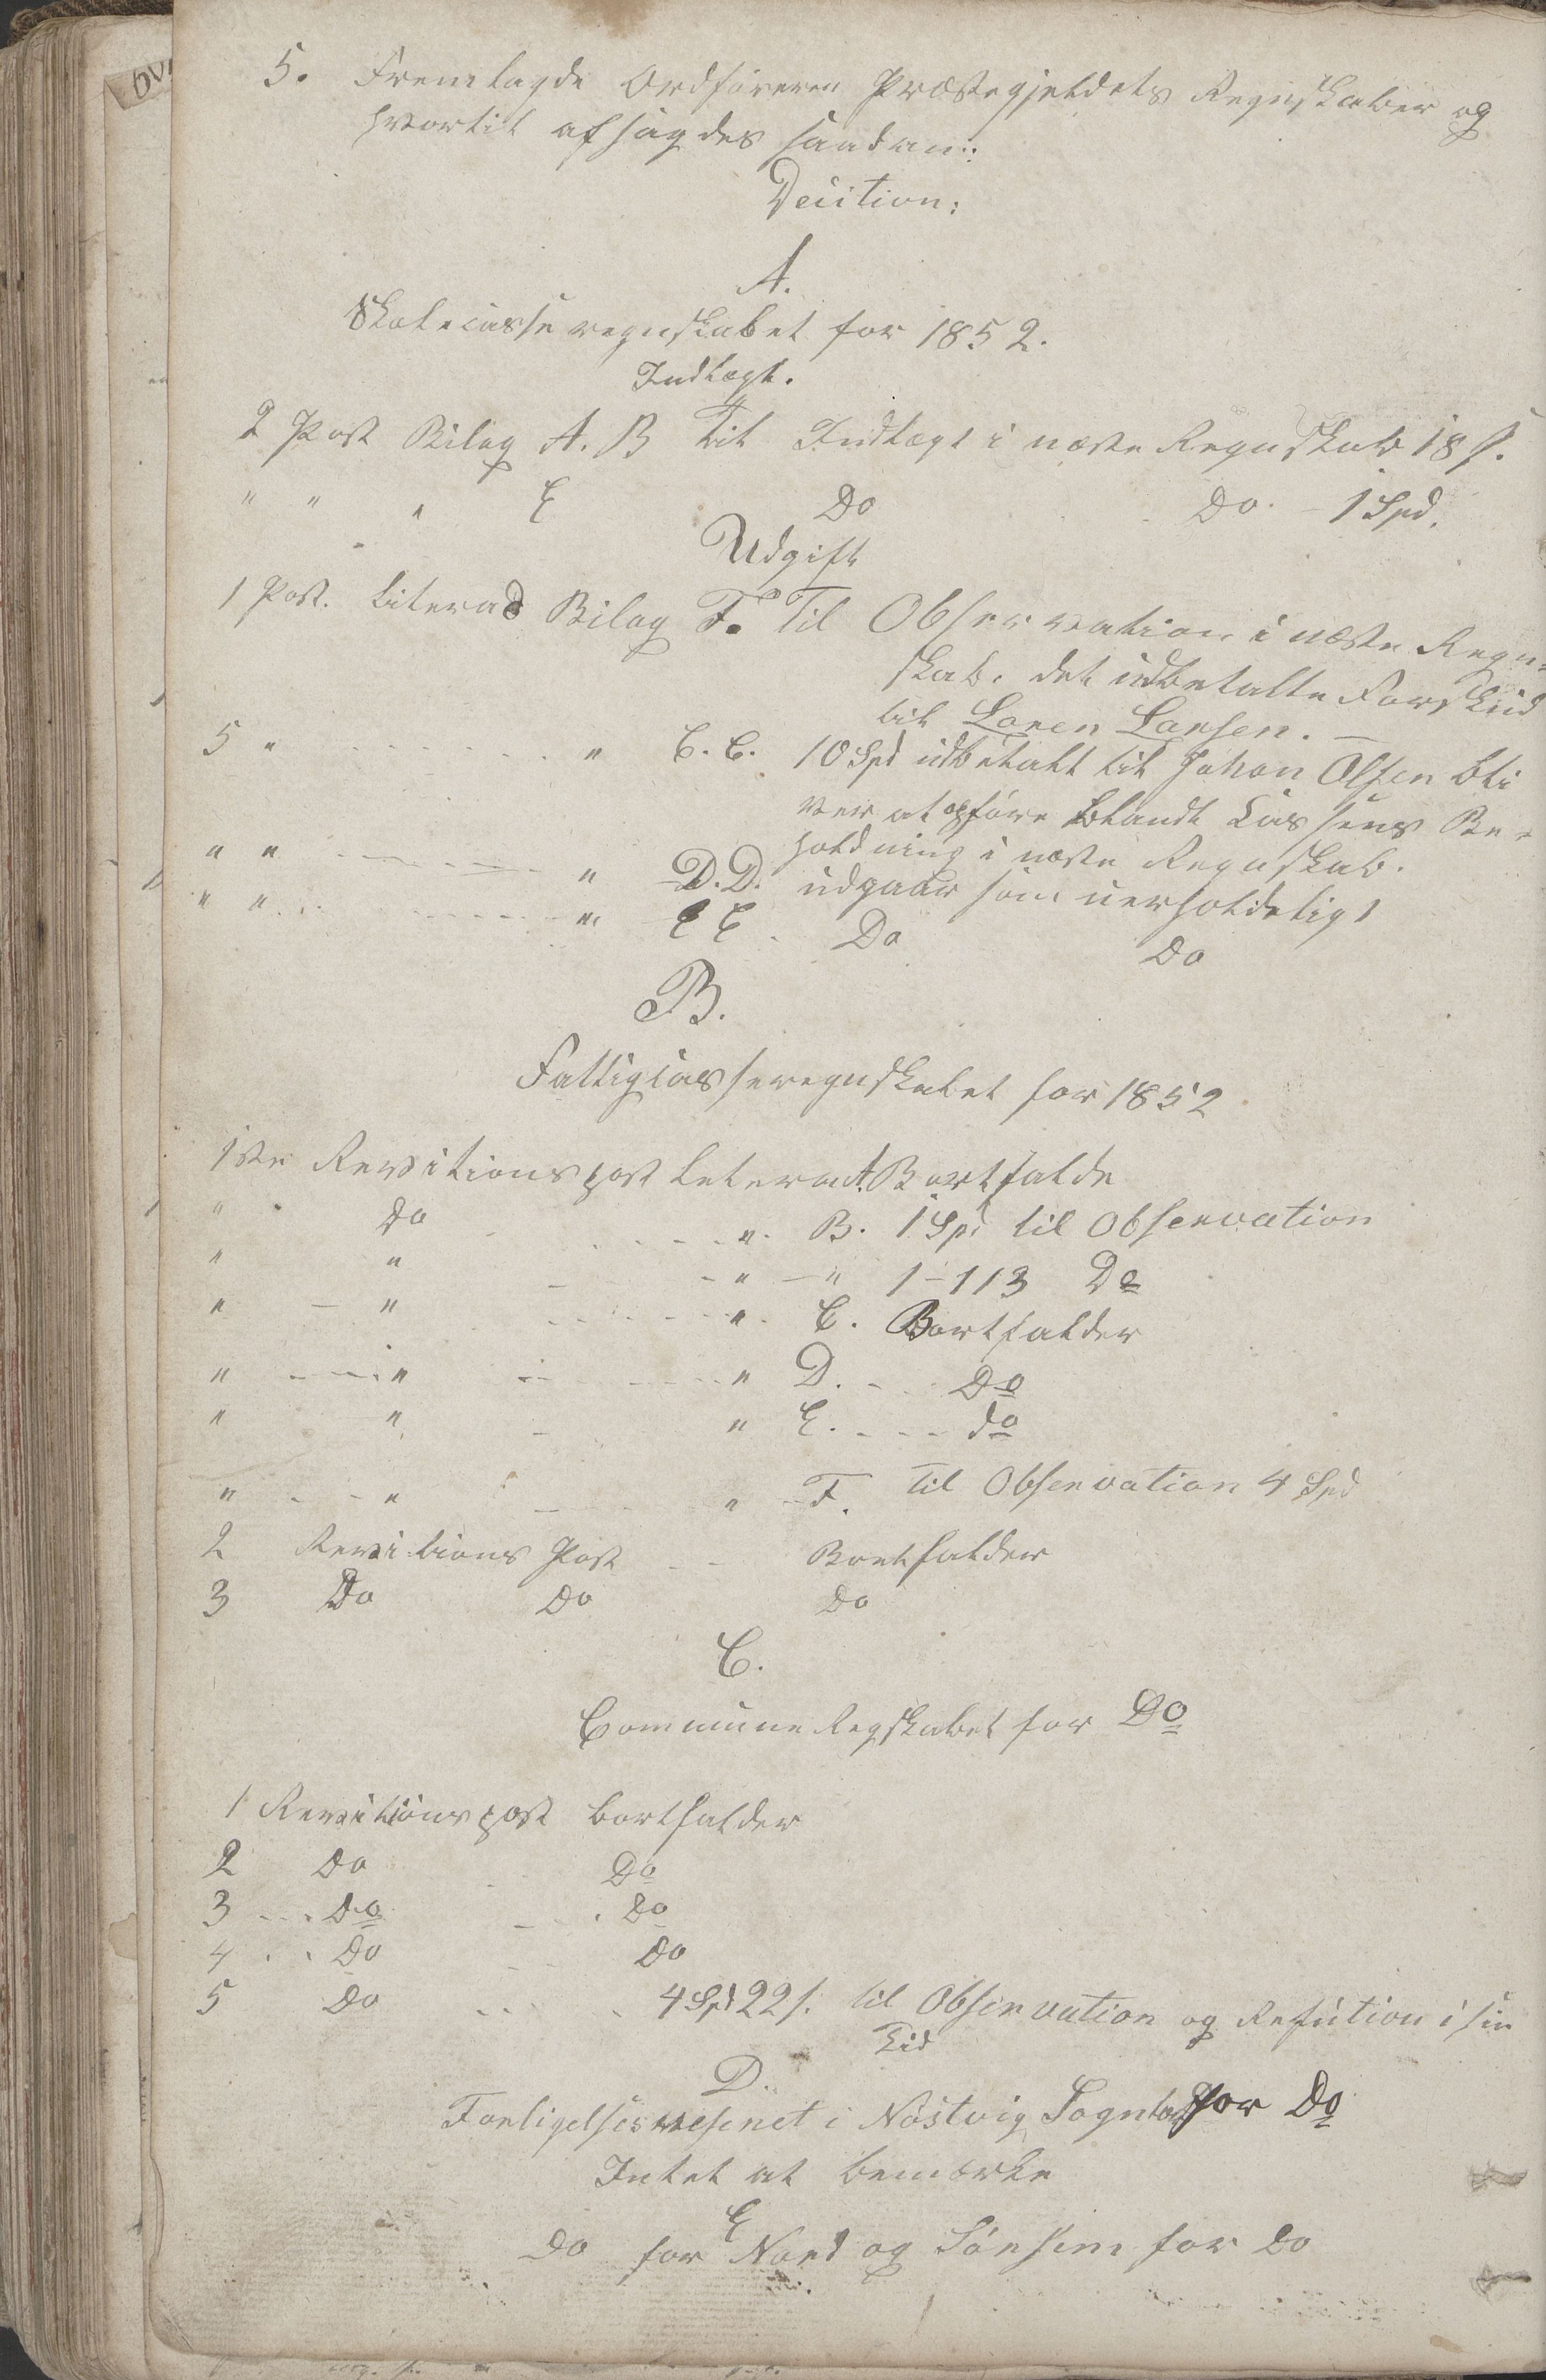 5. Fremlagde Ordføreren Præstegjeldets Regnskaber og
hvortil afsagdes saadan:
Decition:
A.
Skolecasseregnskabet for 1852.
Indtægt.
2 Post Bilag A. B til Indtægt i næste Regnskab 18 s.
" " " E Do Do - 1 Spd.
Udgift
1 Post. Litera Bilag F. Til Observation i næste Regn-
skab, det udbetalte Forskud
til Loren Larsen. -
5 " " C. C. 10 Spd udbetalt til Johan Olsen bli
ver at opføre blandt Cassens Be-
holdning i næste Regnskab.
" " " D. D. udgaar som uerholdeligt
" " " E E. Do Do
B.
Fattigcasseregnskabet for 1852
1ste Revitionspost Letera A. Bortfalde
" do " B. 1 Spd til Observation
" " " " 1-113 Do
" " " C. Bortfalder
" " " D. Do
" " " E. do
" " " F. Til Observation 4 Spd
2 Revitions Post Bortfalder
3 Do Do Do
C.
Commune Regskabet for Do
1 Revitionspost bortfalder
2 Do Do
3 Do Do
4 Do Do
5 Do 4 Spd 22 s. til Observation og Refution i sin
Tid
D.
Forligelsesvesenet i Nøstvig Sogn for Do
Intet at bemærke
E
Do for Nord og Sør for Do